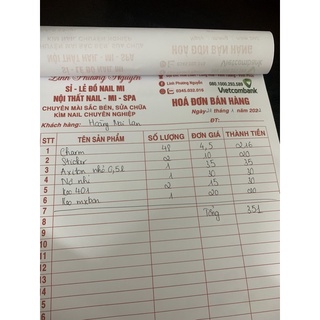 HOÁ ĐƠN BÁN HÀNG
Linh Phương Nguyễn
SỈ - LẺ ĐỒ NAIL MI
NỘI THẤT NAIL - MI - SPA
CHUYÊN MÀI SẮC BÉN, SỬA CHỮA
KÌM NAIL CHUYÊN NGHIỆP
Linh Phương Nguyễn
Vietcombank
HOÁ ĐƠN BÁN HÀNG
Khách hàng: Hoàng Mai Lan
ĐT:
STT TÊN SẢN PHẨM SỐ LƯỢNG ĐƠN GIÁ THÀNH TIỀN
1 Charm 48 4,5 216
2 Sticker 2 10 20
3 Axeton nhỏ 0,5l 1 35 35
4 1 30 30
5 keo 401 2 15 30
6 keo 1 20 20
7 Tổng 351
8
9
10
11
12
13
14